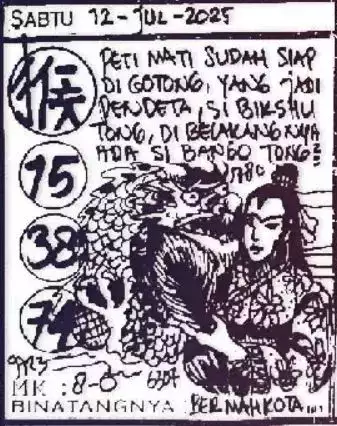 SABTU 12-JUL-2025
猴 PETI MATI SUDAH SIAP
DI GOTONG, YANG JADI
PENDETA, SI BIKSHU
TONG, DI BELAKANGNYA
ADA SI BANGO TONG2
15
38
74
MK : 8-0 6307
BINATANGNYA : BERMAHKOTA...